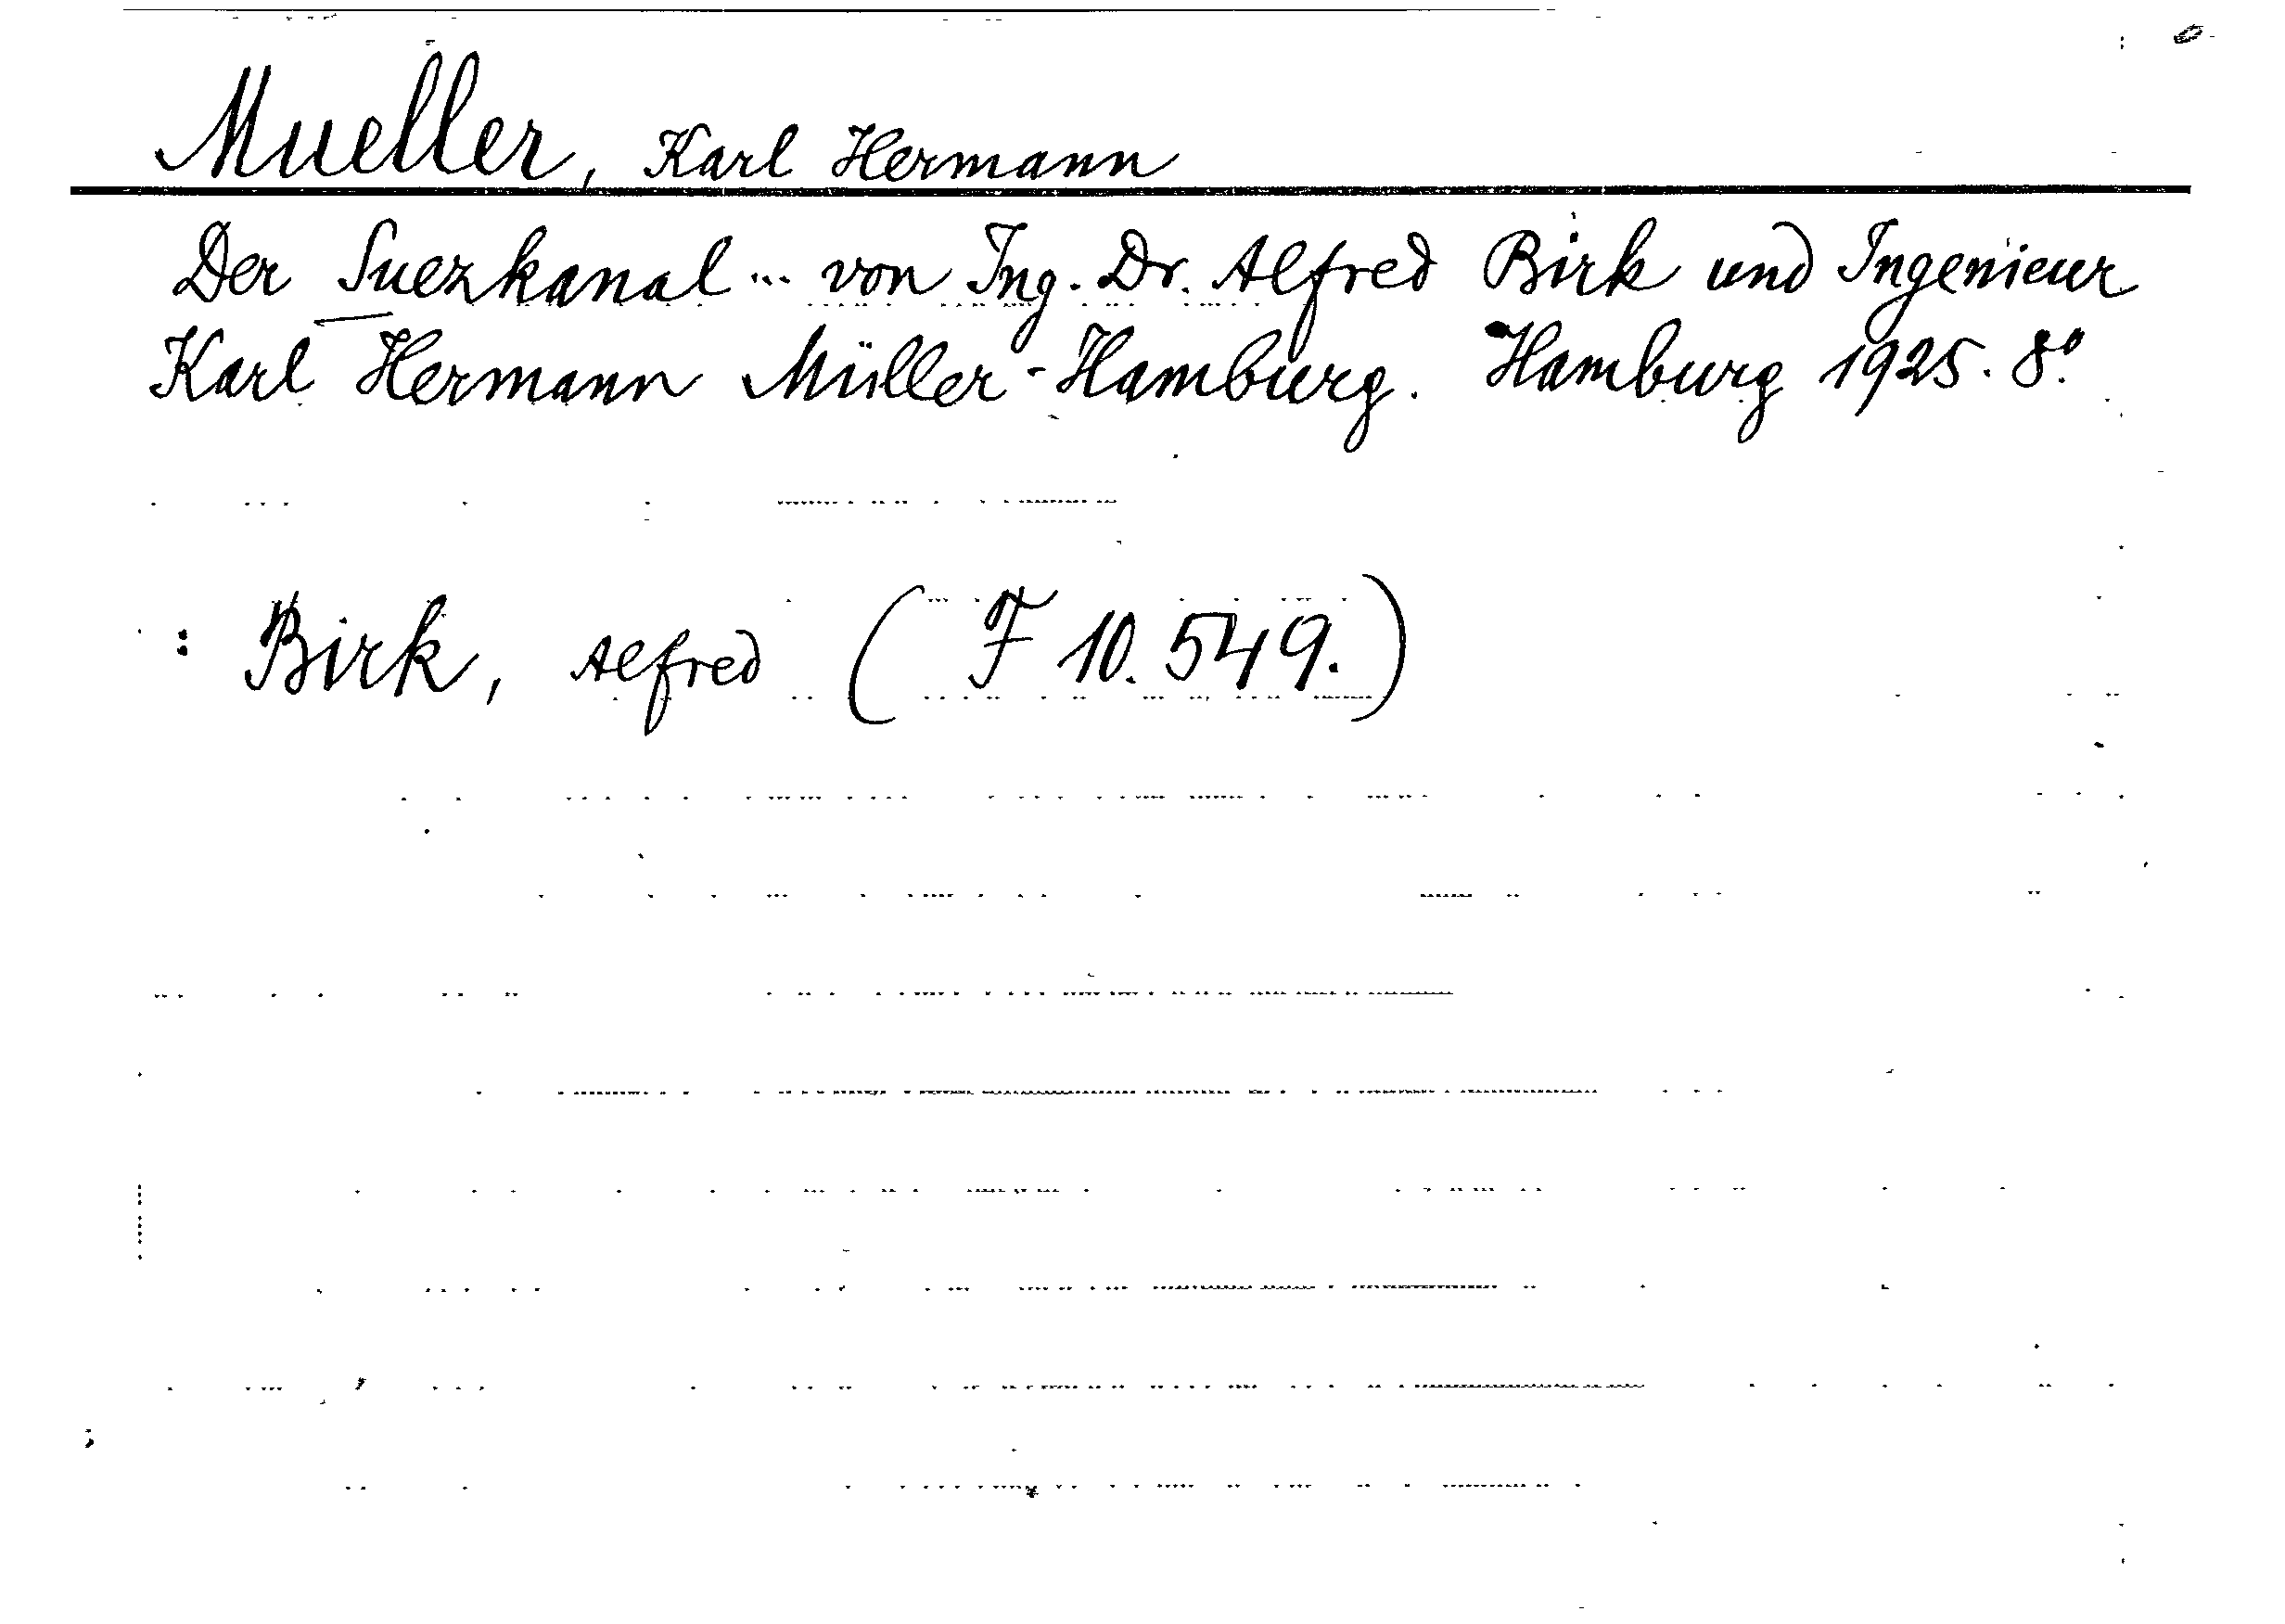 Mueller, Karl Hermann
Der Suezkanal ... von Ing. Dr. Alfred Birk und Ingenieur
Karl Hermann Müller-Hamburg. Hamburg 1925. 8º.
: Birk, Alfred ( F 10.549.)